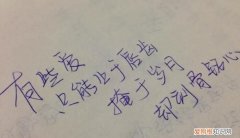 有些爱
只能止于唇齿
掩于岁月
却刻骨铭心